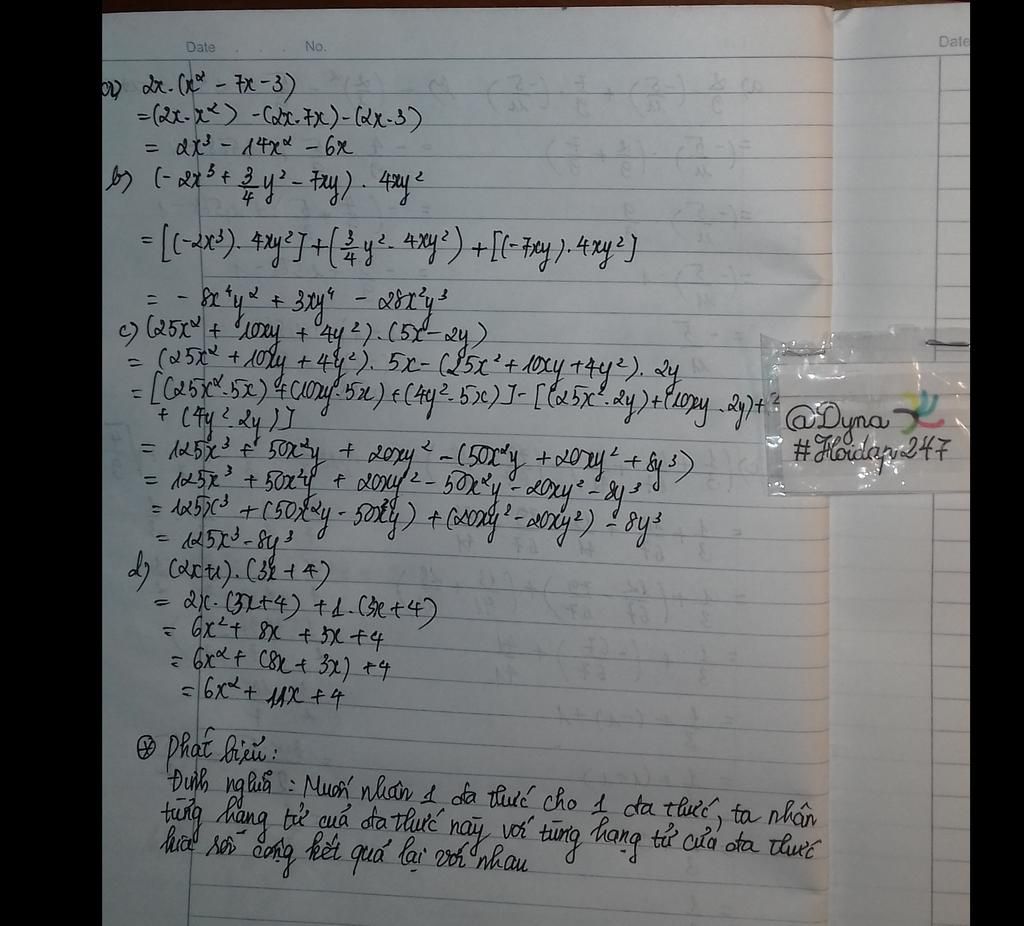 Date . . . No.
Date
a) 2x.(x² - 7x - 3)
= (2x.x²) - (2x.7x) - (2x.3)
= 2x³ - 14x² - 6x
b) (-2x³ + 3/4 y² - 7xy) . 4xy²
= [(-2x³). 4xy²] + (3/4 y². 4xy²) + [(-7xy). 4xy²]
= - 8x⁴y² + 3xy⁴ - 28x²y³
c) (25x² + 10xy + 4y²).(5x - 2y)
= (25x² + 10xy + 4y²). 5x - (25x² + 10xy + 4y²). 2y
= [(25x².5x) + (10xy.5x) + (4y².5x)] - [(25x².2y) + (10xy.2y) +
+ (4y².2y)]
= 125x³ + 50x²y + 20xy² - (50x²y + 20xy² + 8y³)
= 125x³ + 50x²y + 20xy² - 50x²y - 20xy² - 8y³
= 125x³ + (50x²y - 50x²y) + (20xy² - 20xy²) - 8y³
= 125x³ - 8y³
d) (2x+1).(3x+4)
= 2x.(3x+4) + 1.(3x+4)
= 6x² + 8x + 3x + 4
= 6x² + (8x + 3x) + 4
= 6x² + 11x + 4
@Dyna
#Hoidap247
* Phát biểu:
Định nghĩa : Muốn nhân 1 đa thức cho 1 đa thức, ta nhân
từng hạng tử của đa thức này với từng hạng tử của đa thức
kia rồi cộng kết quả lại với nhau